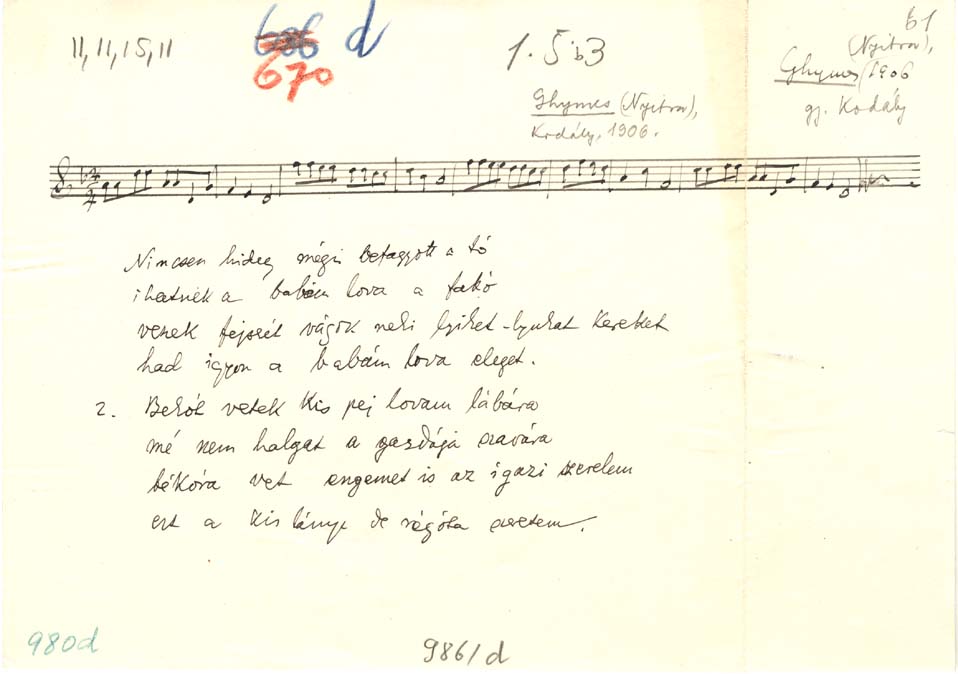 11, 11, 15, 11
606 d
670
1. 5 b3
61
Ghymes (Nyitra),
Kodály, 1906.
(Nyitra),
Ghymes 1906
gj. Kodály
2/4
Nincsen hideg mégis befagyott a tó
ihatnék a babám lova a fakó
veszek fejszét vágok neki lyiket-lyukat kereket
had igyon a babám lova eleget.
2. Békót vetek kis pej lovam lábára
mé nem halgat a gazdája szavára
békóra vet engemet is az igazi szerelem
ezt a kis lányt de régóta szeretem.
980d
986/d